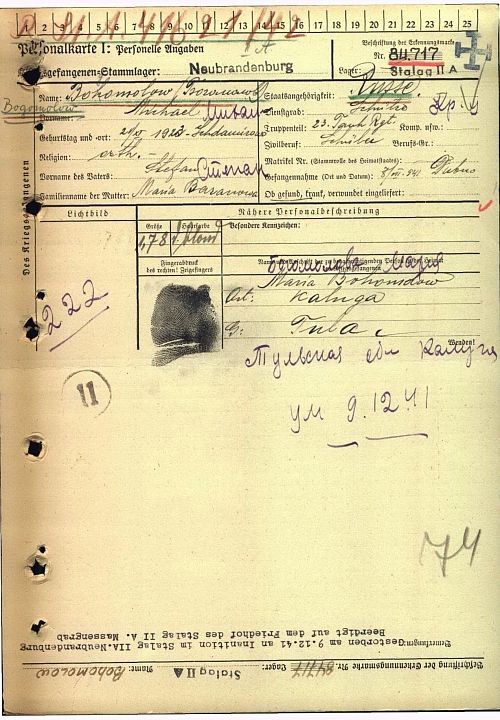 1 2 3 4 5 6 7 8 9 10 11 12 13 14 15 16 17 18 19 20 21 22 23 24 25
Personalkarte I: Personelle Angaben
Kriegsgefangenen-Stammlager: Neubrandenburg
Beschriftung der Erkennungsmarke
Nr. 84.717
Lager: Stalag II A
Des Kriegsgefangenen
Name: Bohomolow
Bogomolow
Vorname: Michael
Geburtstag und -ort: 1923
Religion: orth.
Vorname des Vaters: Stefan Степан
Familienname der Mutter: Maria Baranowa
Staatsangehörigkeit: Russe
Dienstgrad: Schütze
Truppenteil: 23. Rgt. Komp. usw.:
Zivilberuf: Schüler Berufs-Gr.:
Matrikel Nr. (Stammrolle des Heimatstaates):
Gefangennahme (Ort und Datum): 8/VII. 941 Dubno
Ob gesund, krank, verwundet eingeliefert:
Lichtbild
Nähere Personalbeschreibung
Größe Haarfarbe Besondere Kennzeichen:
1,78 blond
Fingerabdruck
des rechten! Zeigefingers
Богомолова Мария
Maria Bohomolow
Ort: Kaluga
G: Tula
Wenden!
222
Тульская обл Калуга
11
ум 9.12.41
74
Bemerkungen:
Gestorben am 9.12.41 an Inanition im Stalag IIA-Neubrandenburg
Beerdigt auf dem Friedhof des Stalag II A Massengrab
Beschriftung der Erkennungsmarke Nr. 84717 Lager: Stalag II A Name: Bohomolow